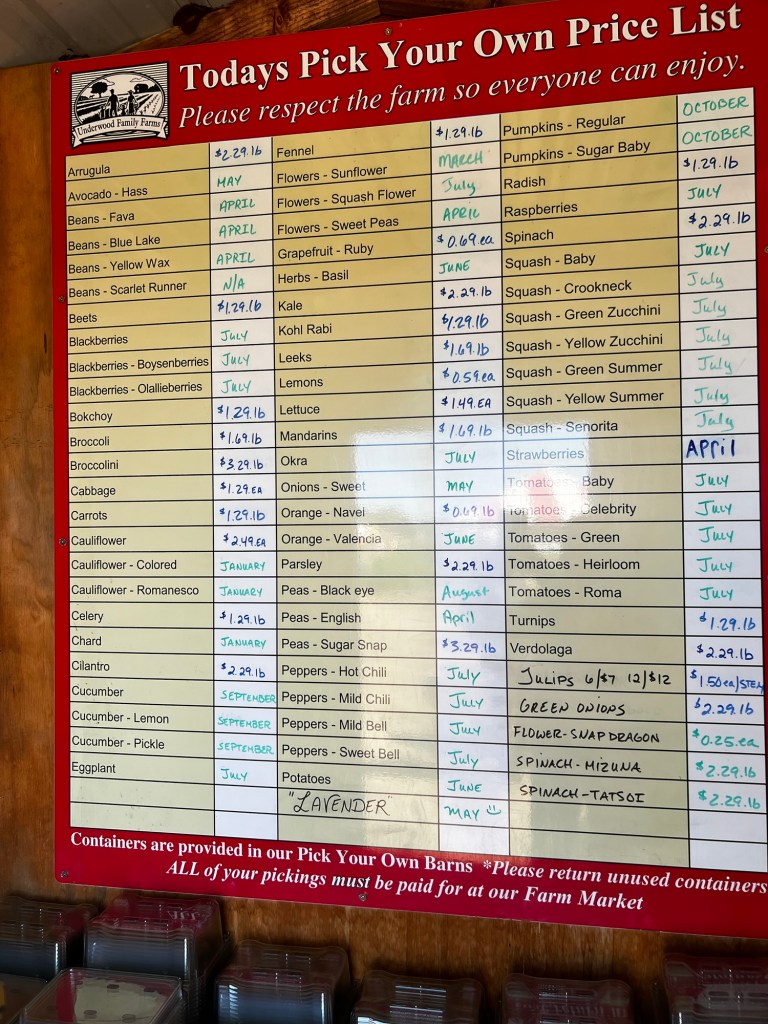 Underwood Family Farms
Todays Pick Your Own Price List
Please respect the farm so everyone can enjoy.
Arrugula $2.29.lb
Avocado - Hass MAY
Beans - Fava APRIL
Beans - Blue Lake APRIL
Beans - Yellow Wax APRIL
Beans - Scarlet Runner N/A
Beets $1.29.lb
Blackberries JULY
Blackberries - Boysenberries JULY
Blackberries - Olallieberries JULY
Bokchoy $1.29.lb
Broccoli $1.69.lb
Broccolini $3.29.lb
Cabbage $1.29.EA
Carrots $1.29.lb
Cauliflower $2.49.EA
Cauliflower - Colored JANUARY
Cauliflower - Romanesco JANUARY
Celery $1.29.lb
Chard JANUARY
Cilantro $2.29.lb
Cucumber SEPTEMBER
Cucumber - Lemon SEPTEMBER
Cucumber - Pickle SEPTEMBER
Eggplant JULY
Fennel $1.29.lb
Flowers - Sunflower MARCH
Flowers - Squash Flower July
Flowers - Sweet Peas APRIL
Grapefruit - Ruby $0.69.ea
Herbs - Basil JUNE
Kale $2.29.lb
Kohl Rabi $1.29.lb
Leeks $1.69.lb
Lemons $0.59.ea
Lettuce $1.49.EA
Mandarins $1.69.lb
Okra JULY
Onions - Sweet MAY
Orange - Navel $0.69.lb
Orange - Valencia JUNE
Parsley $2.29.lb
Peas - Black eye August
Peas - English April
Peas - Sugar Snap $3.29.lb
Peppers - Hot Chili July
Peppers - Mild Chili July
Peppers - Mild Bell July
Peppers - Sweet Bell July
Potatoes JUNE
"LAVENDER" MAY
Pumpkins - Regular OCTOBER
Pumpkins - Sugar Baby OCTOBER
Radish $1.29.lb
Raspberries JULY
Spinach $2.29.lb
Squash - Baby JULY
Squash - Crookneck July
Squash - Green Zucchini July
Squash - Yellow Zucchini July
Squash - Green Summer July
Squash - Yellow Summer July
Squash - Senorita July
Strawberries April
Tomatoes - Baby July
Tomatoes - Celebrity July
Tomatoes - Green July
Tomatoes - Heirloom July
Tomatoes - Roma July
Turnips $1.29.lb
Verdolaga $2.29.lb
TULIPS 6/$7 12/$12 $1.50ea/STEM
GREEN ONIONS $2.29.lb
FLOWER-SNAPDRAGON $0.25.ea
SPINACH-MIZUNA $2.29.lb
SPINACH-TATSOI $2.29.lb
Containers are provided in our Pick Your Own Barns *Please return unused containers
ALL of your pickings must be paid for at our Farm Market